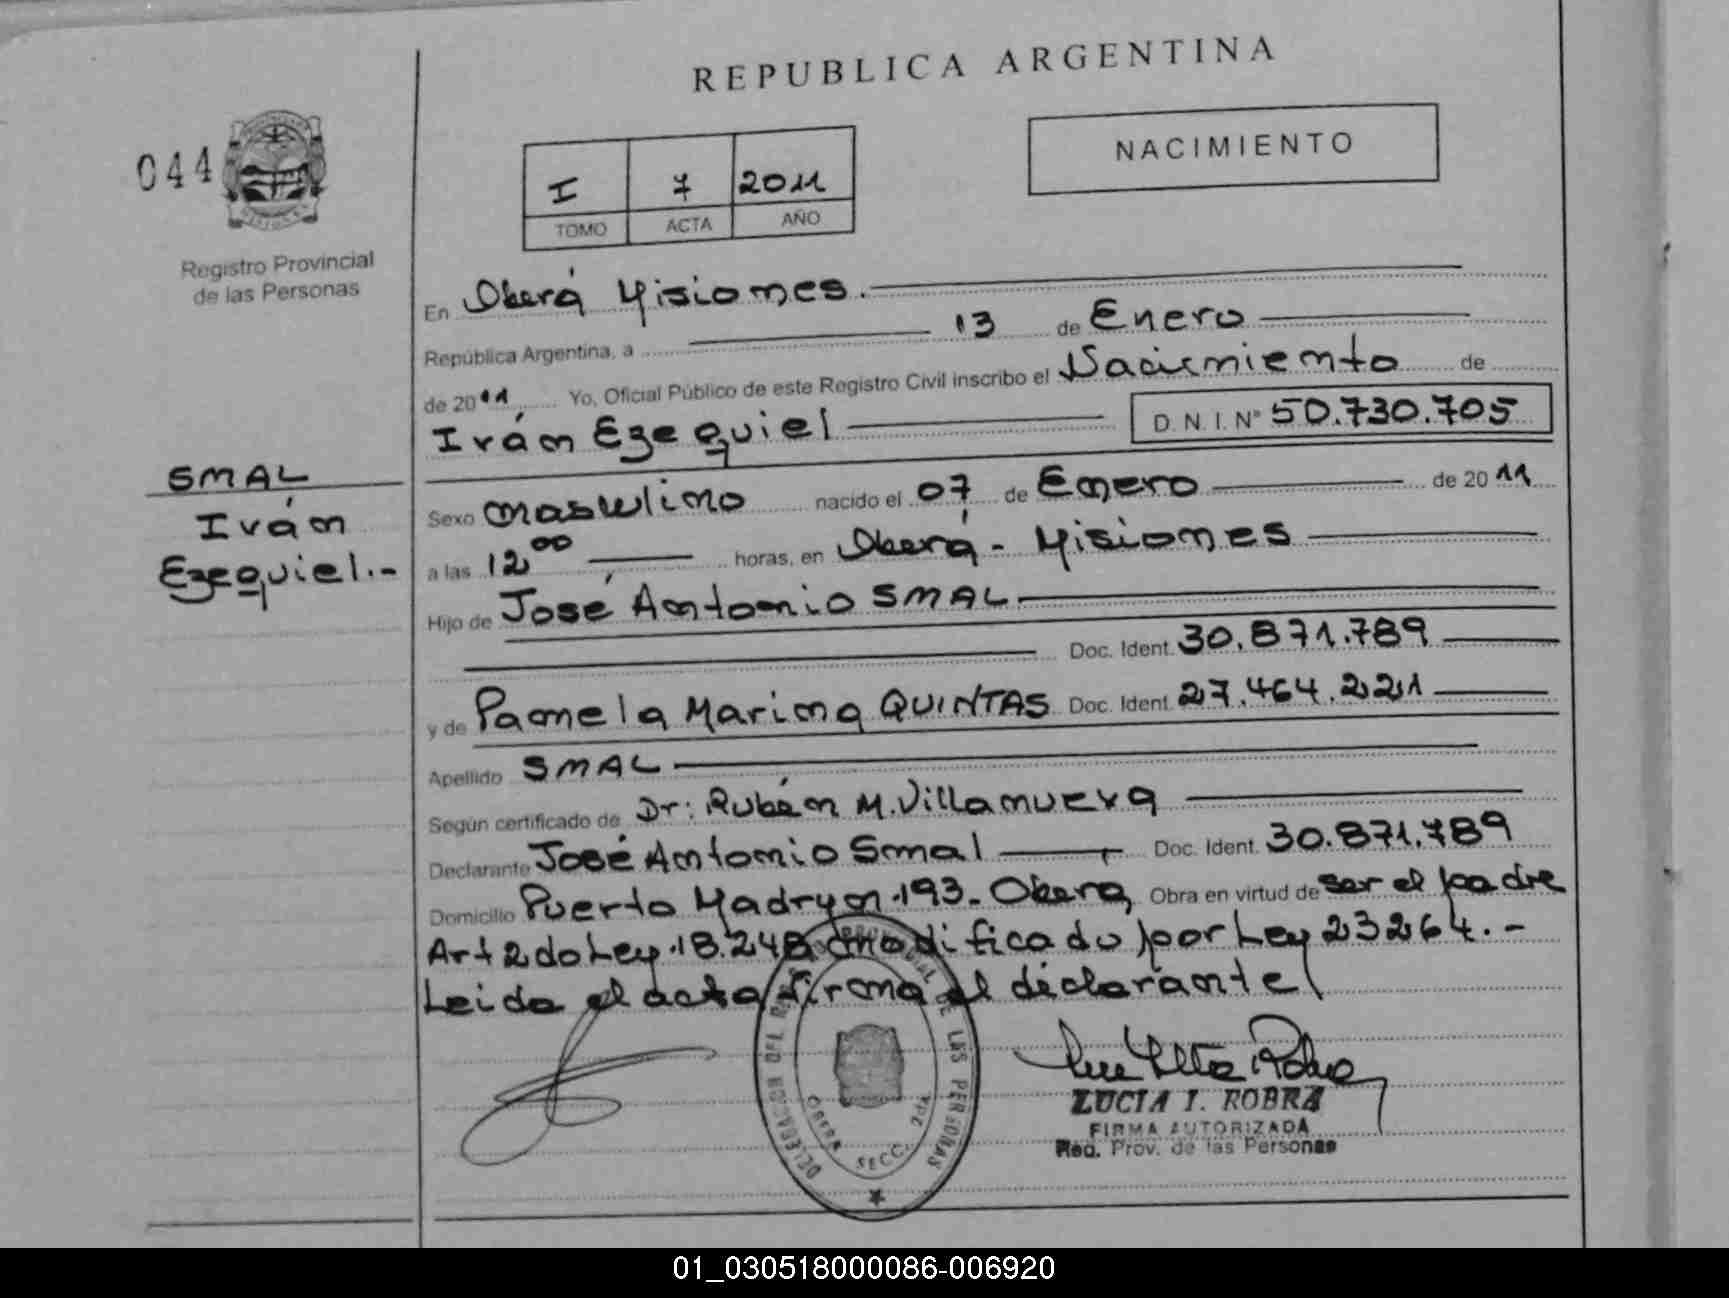 REPUBLICA ARGENTINA
044
NACIMIENTO
I 7 2011
TOMO ACTA AÑO
Registro Provincial
de las Personas
En Oberá Misiones.
República Argentina, a 13 de Enero
de 2011 Yo, Oficial Público de este Registro Civil inscribo el Nacimiento de
Iván Ezequiel D. N. I. Nº 50.730.705
SMAL
Iván
Ezequiel.-
Sexo masculino nacido el 07 de Enero de 2011
a las 12 00 horas, en Oberá - Misiones
Hijo de José Antonio SMAL
Doc. Ident. 30.871.789
y de Pamela Marina QUINTAS Doc. Ident. 27.464.221
Apellido SMAL
Según certificado de Dr: Rubén M. Villanueva
Declarante José Antonio Smal Doc. Ident. 30.871.789
Domicilio Puerto Madryn 193. Oberá Obra en virtud de ser el padre
Art 2 do Ley 18.248 modificado por Ley 23264.-
Leida el acta firma el declarante
DELEGACION DEL REG. PROVINCIAL DE LAS PERSONAS
OBERA SECC. 2da
LUCIA I. ROBRA
FIRMA AUTORIZADA
Reg. Prov. de las Personas
01_030518000086-006920